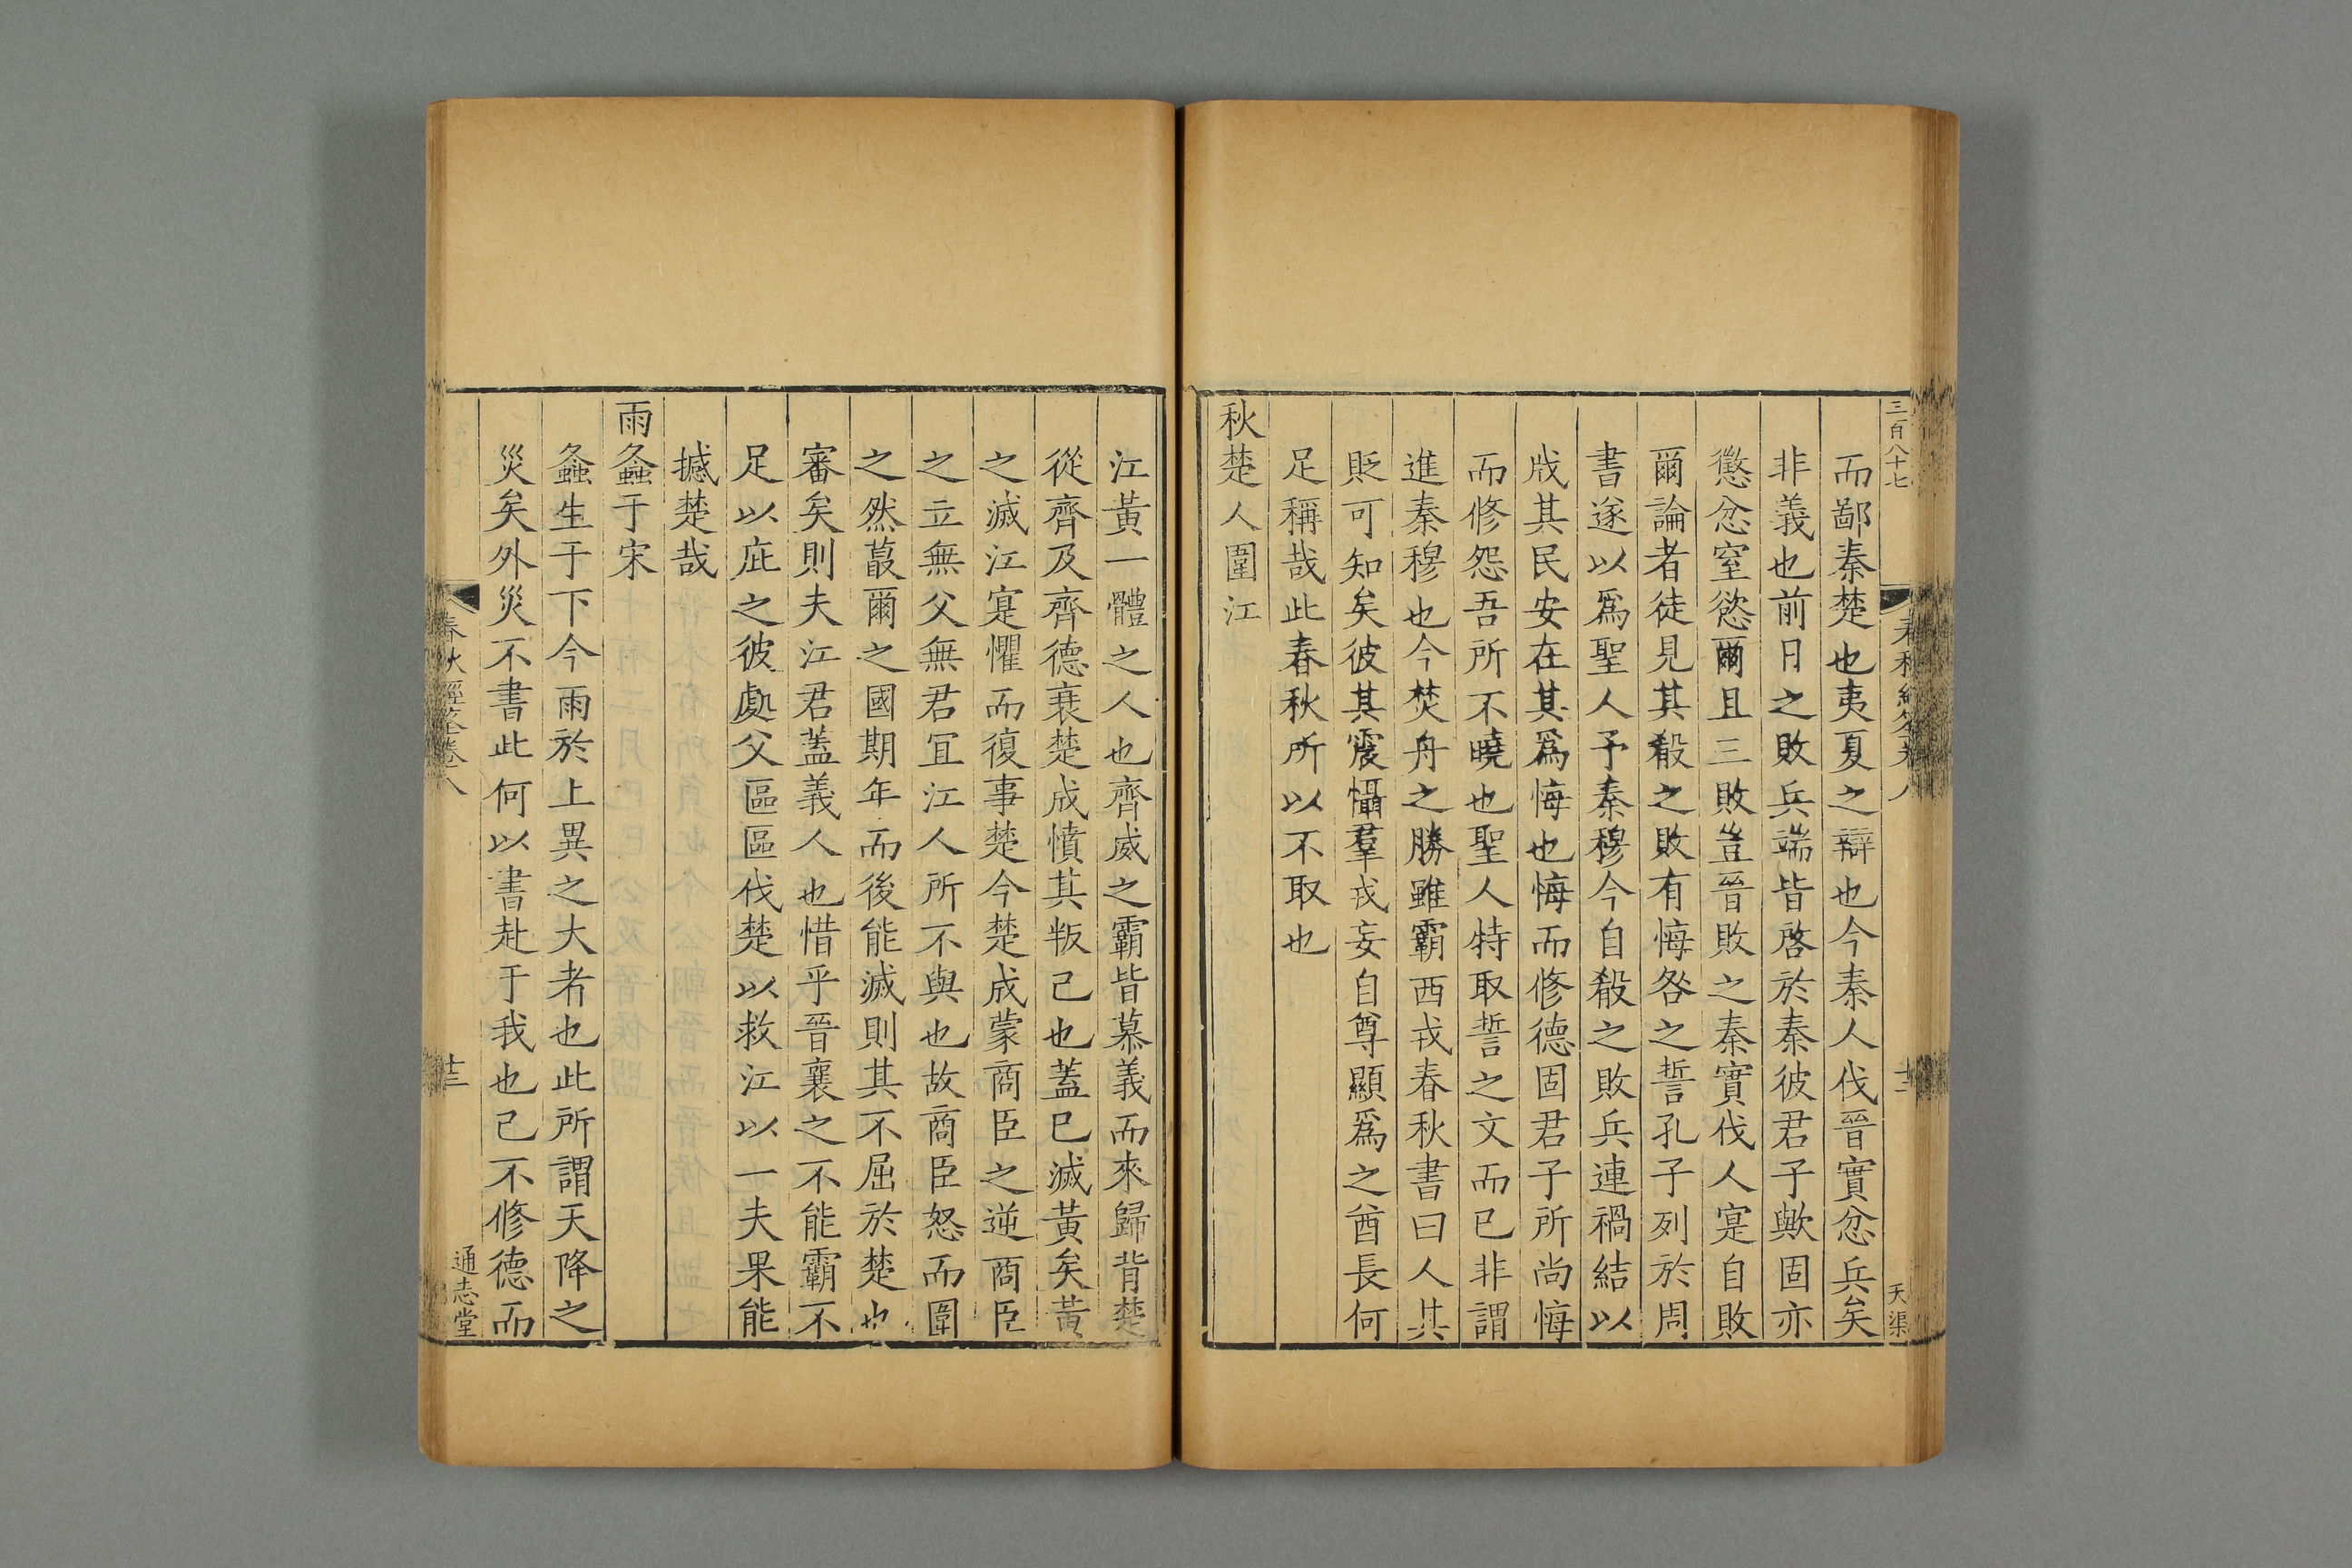 三百八十七
而鄙秦楚也夷夏之辯也今秦人伐晉實忿兵矣
非義也前日之敗兵端皆啓於秦彼君子歟固亦
懲忿窒慾爾且三敗豈晉敗之秦實伐人寔自敗
爾論者徒見其殽之敗有悔咎之誓孔子列於周
書遂以爲聖人予秦穆今自殽之敗兵連禍結以
戕其民安在其爲悔也悔而修德固君子所尚悔
而修怨吾所不曉也聖人特取誓之文而已非謂
進秦穆也今焚舟之勝雖霸西戎春秋書曰人其
貶可知矣彼其震懾羣戎妄自尊顯爲之酋長何
足稱哉此春秋所以不取也
秋楚人圍江
江黃一體之人也齊威之霸皆慕義而來歸背楚
從齊及齊德衰楚成憤其叛己也蓋巳滅黃矣黃
之滅江寔懼而復事楚今楚成蒙商臣之逆商臣
之立無父無君冝江人所不與也故商臣怒而圍
之然蕞爾之國期年而後能滅則其不屈於楚也
審矣則夫江君蓋義人也惜乎晉襄之不能霸不
足以庇之彼處父區區伐楚以救江以一夫果能
撼楚哉
雨螽于宋
螽生于下今雨於上異之大者也此所謂天降之
災矣外災不書此何以書赴于我也己不修德而
春秋經筌卷八
十三
通志堂